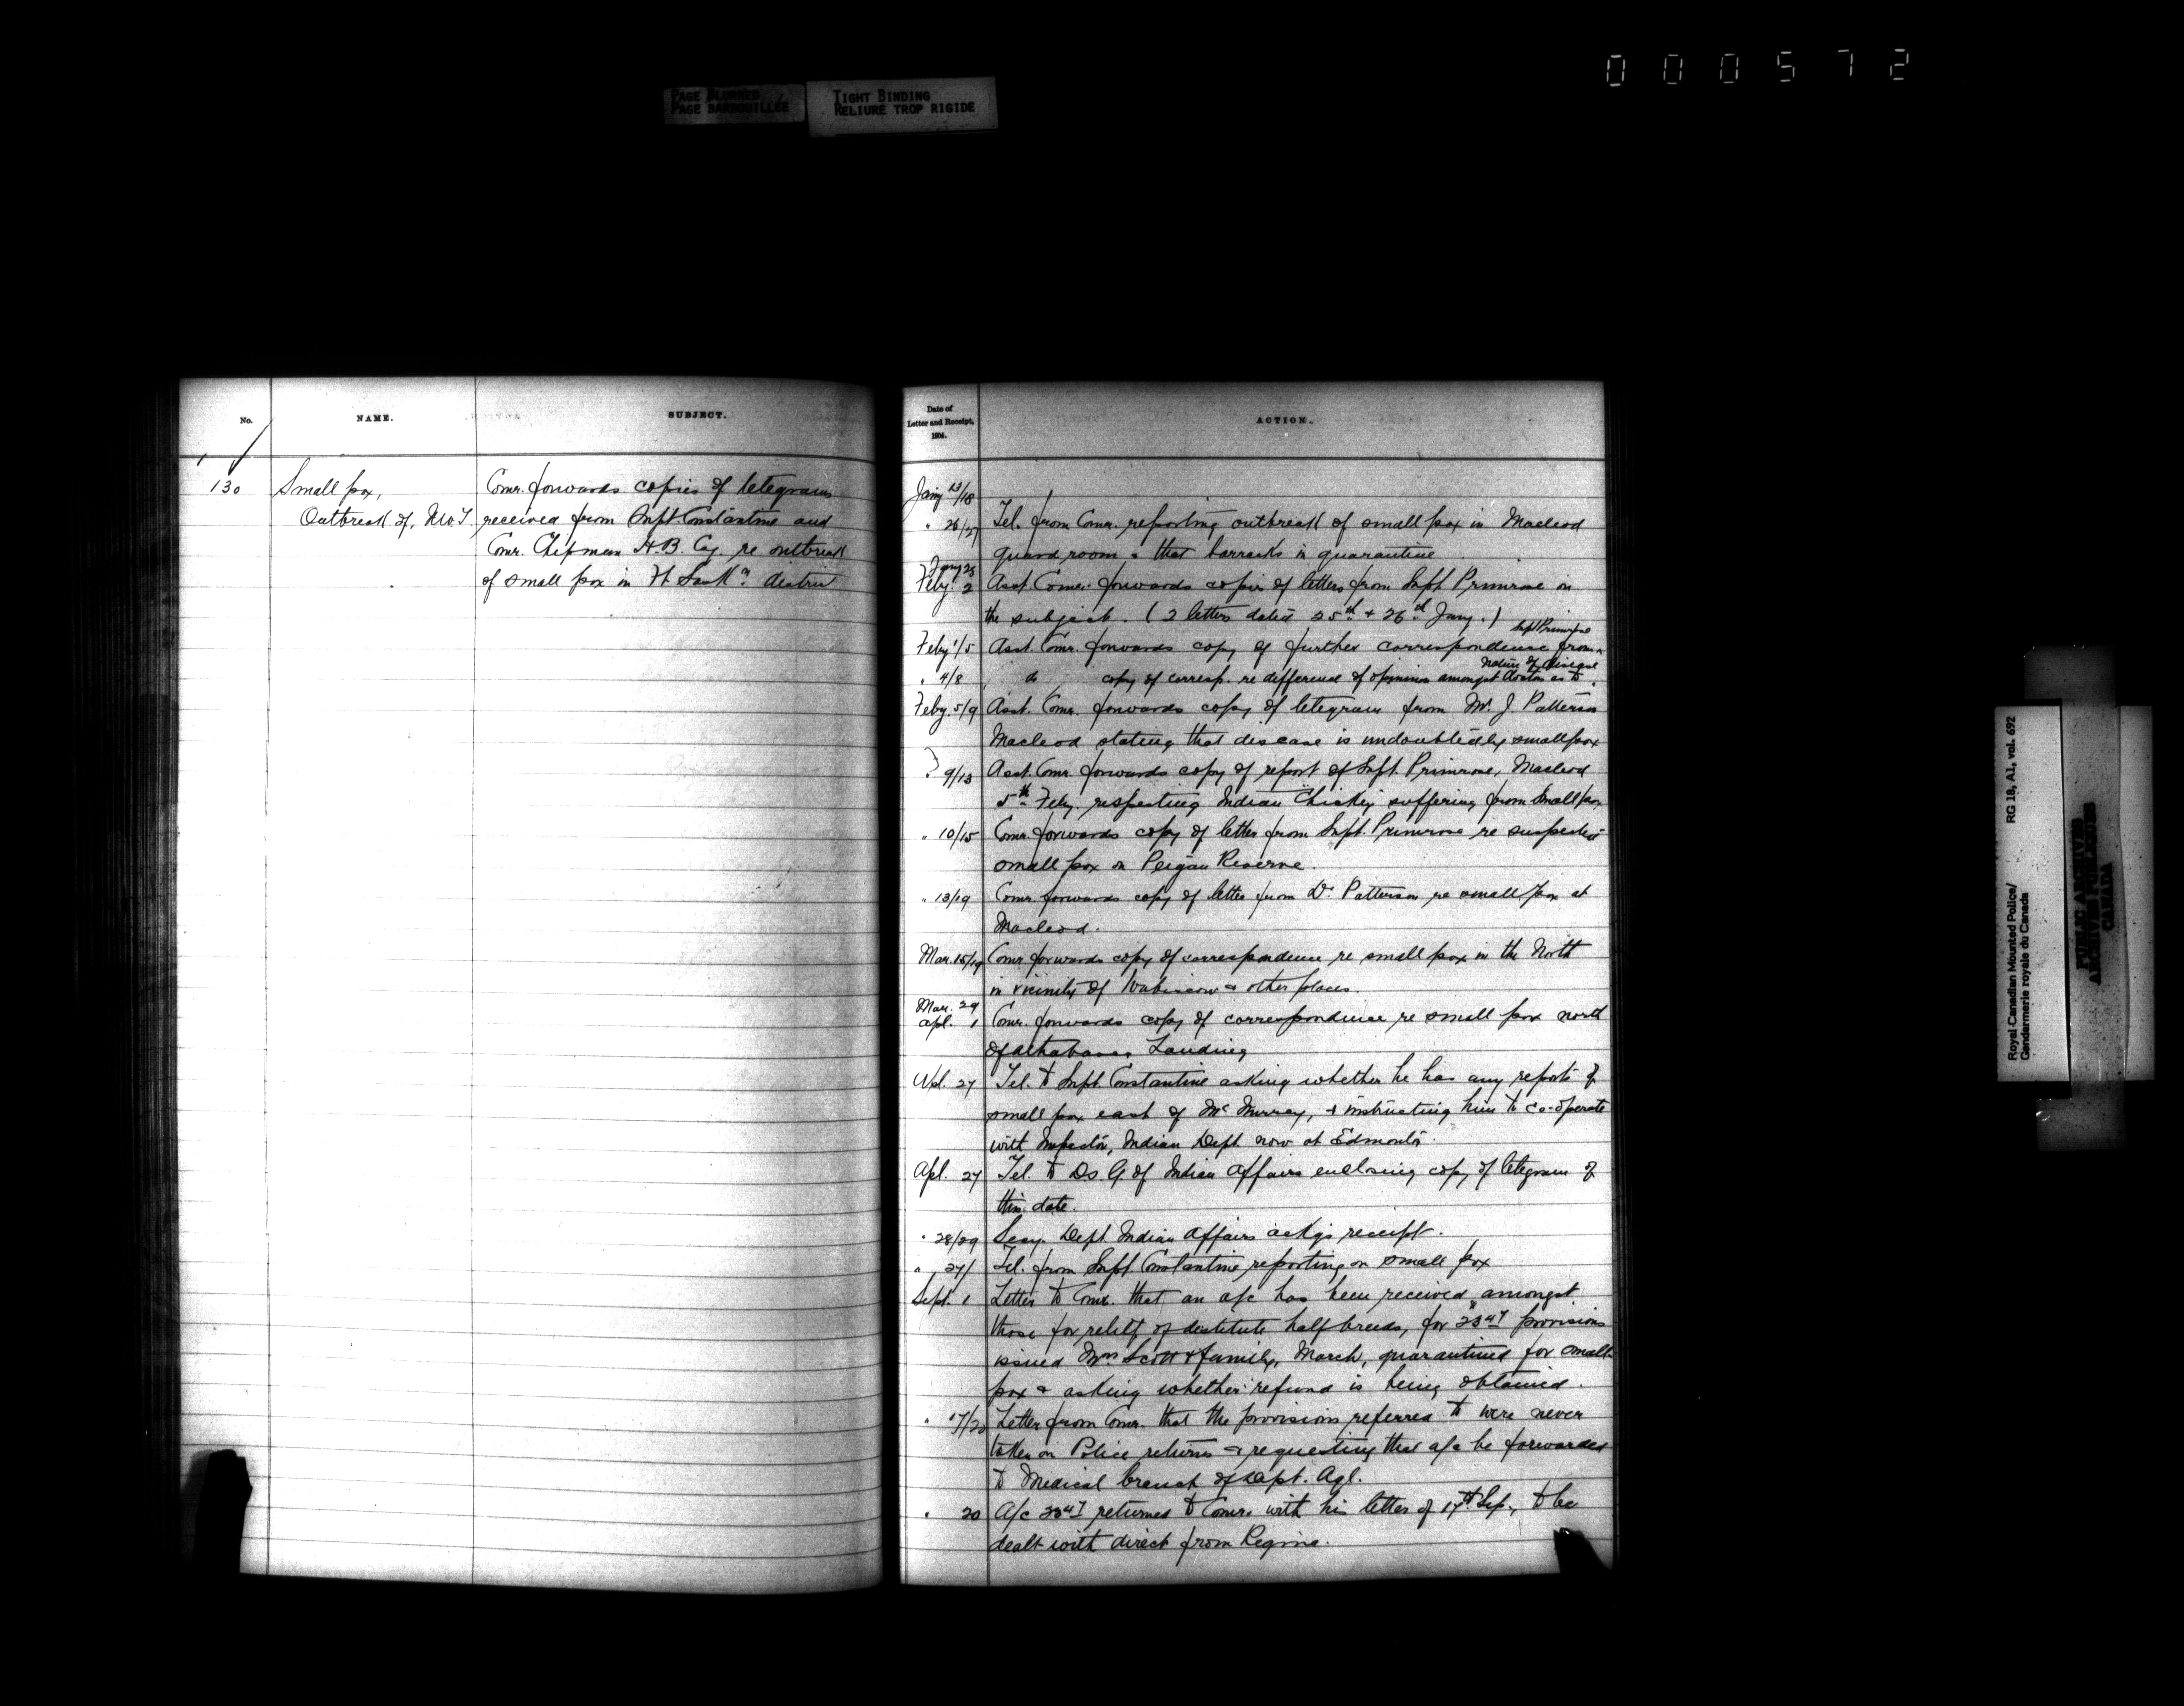 000572
PAGE BLURRED
PAGE BARBOUILLÉE
TIGHT BINDING
RELIURE TROP RIGIDE
No.
NAME.
SUBJECT.
130
Small pox,
Outbreak of, N.W.T
Comr. forwards copies of telegrams
received from Supt Constantine and
Comr. Chipman H.B. Coy. re outbreak
of small pox in Ft Sask.n district
Date of
Letter and Receipt,
1904.
ACTION.
Jany 13/18
" 26/27 Tel. from Comr. reporting outbreak of small pox in Macleod
guard room & that barracks in quarantine
Jany 28
Feby. 2 Asst. Comr. forwards copies of letters from Supt. Primrose on
the subject. (2 letters dated 25th & 26th Jany.)
Feby 1/5 Asst. Comr. forwards copy of further correspondence from Supt Primrose
" 4/8 do copy of corresp. re difference of opinion amongst doctors as to nature of disease
Feby. 5/9 Asst. Comr. forwards copy of telegram from Mr. J. Patterson
Macleod stating that disease is undoubtedly smallpox
" 9/13 Asst. Comr. forwards copy of report of Supt. Primrose, Macleod
5th Feby. respecting Indian "Chickey" suffering from Small pox
" 10/15 Comr. forwards copy of letter from Supt. Primrose re suspected
small pox on Peigan Reserve.
" 13/19 Comr. forwards copy of letter from Dr. Patterson re small pox at
Macleod.
Mar. 15/19 Comr. forwards copy of correspondence re small pox in the North
in vicinity of Wabiscow & other places.
Mar. 29
Apl. 1 Comr. forwards copy of correspondence re small pox north
of Athabasca Landing
Apl. 27 Tel. to Supt. Constantine asking whether he has any reports of
small pox east of McMurray, & instructing him to co-operate
with Inspector, Indian Dept. now at Edmonton.
Apl. 27 Tel. to D.S.G. of Indian Affairs enclosing copy of telegram of
this date.
" 28/29 Secy. Dept. Indian Affairs ackgs receipt.
" 27/ Tel. from Supt. Constantine reporting on small pox
Sept. 1 Letter to Comr. that an a/c has been received, amongst
those for relief of destitute half breeds, for $23.47 provisions
issued Mrs Scott & family, March, quarantined for small-
pox & asking whether refund is being obtained.
" 17/20 Letter from Comr. that the provisions referred to were never
taken on Police returns & requesting that a/c be forwarded
to Medical branch of Dept. Agl.
" 20 A/c 23.47 returned to Comr. with his letter of 17th Sep., to be
dealt with direct from Regina.
Royal Canadian Mounted Police/
Gendarmerie royale du Canada
RG 18, A1, vol. 692
PUBLIC ARCHIVES
ARCHIVES PUBLIQUES
CANADA